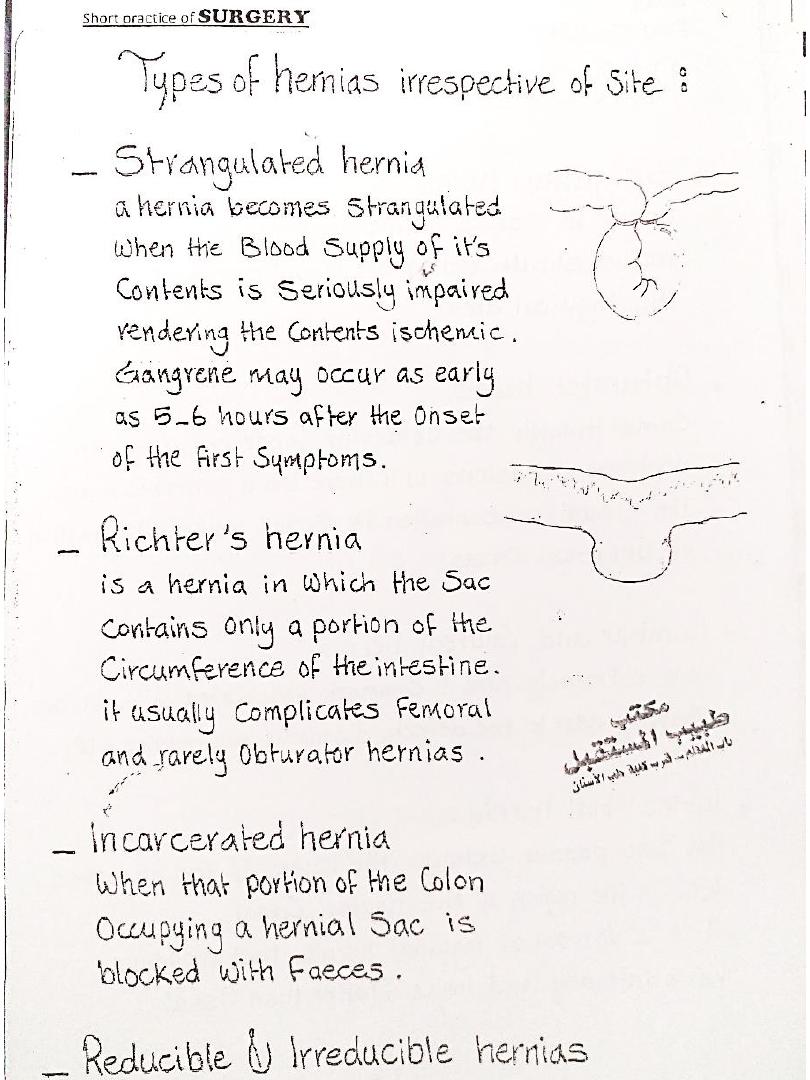 Short practice of SURGERY
Types of hernias irrespective of Site :
_ Strangulated hernia
a hernia becomes Strangulated
when the Blood Supply of it's
Contents is Seriously impaired
rendering the Contents ischemic.
Gangrene may occur as early
as 5_6 hours after the Onset
of the first Symptoms.
_ Richter's hernia
is a hernia in which the Sac
Contains Only a portion of the
Circumference of the intestine.
it usually Complicates Femoral
and rarely Obturator hernias .
مكتب
طبيب المستقبل
_ Incarcerated hernia
When that portion of the Colon
Occupying a hernial Sac is
blocked with Faeces .
_ Reducible & Irreducible hernias